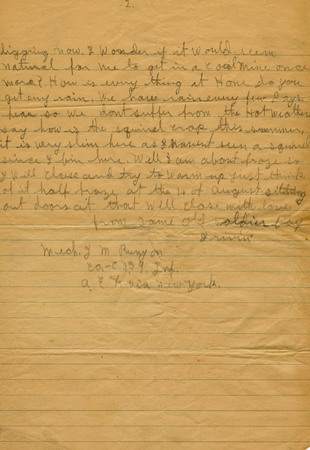 2.
digging now & Wonder if it would seem
natural for me to get in a Coal Mine once
more? How is every thing at Home do you
get any rain. We have rain every few Days
hear so We dont suffer from the Hot Weather
say how is the squirrel crop this summer,
it is very slim here as I havent seen a squirrel
since I ben here. Well I am about froze so
I Will close and try to warm up just think
of it half froze at the 10 of August sitting
out doors at that Well close with love
from same old soldier boy
Irwin
Mech. J M
Co-C 139 Inf.
A. E. F. via New York.